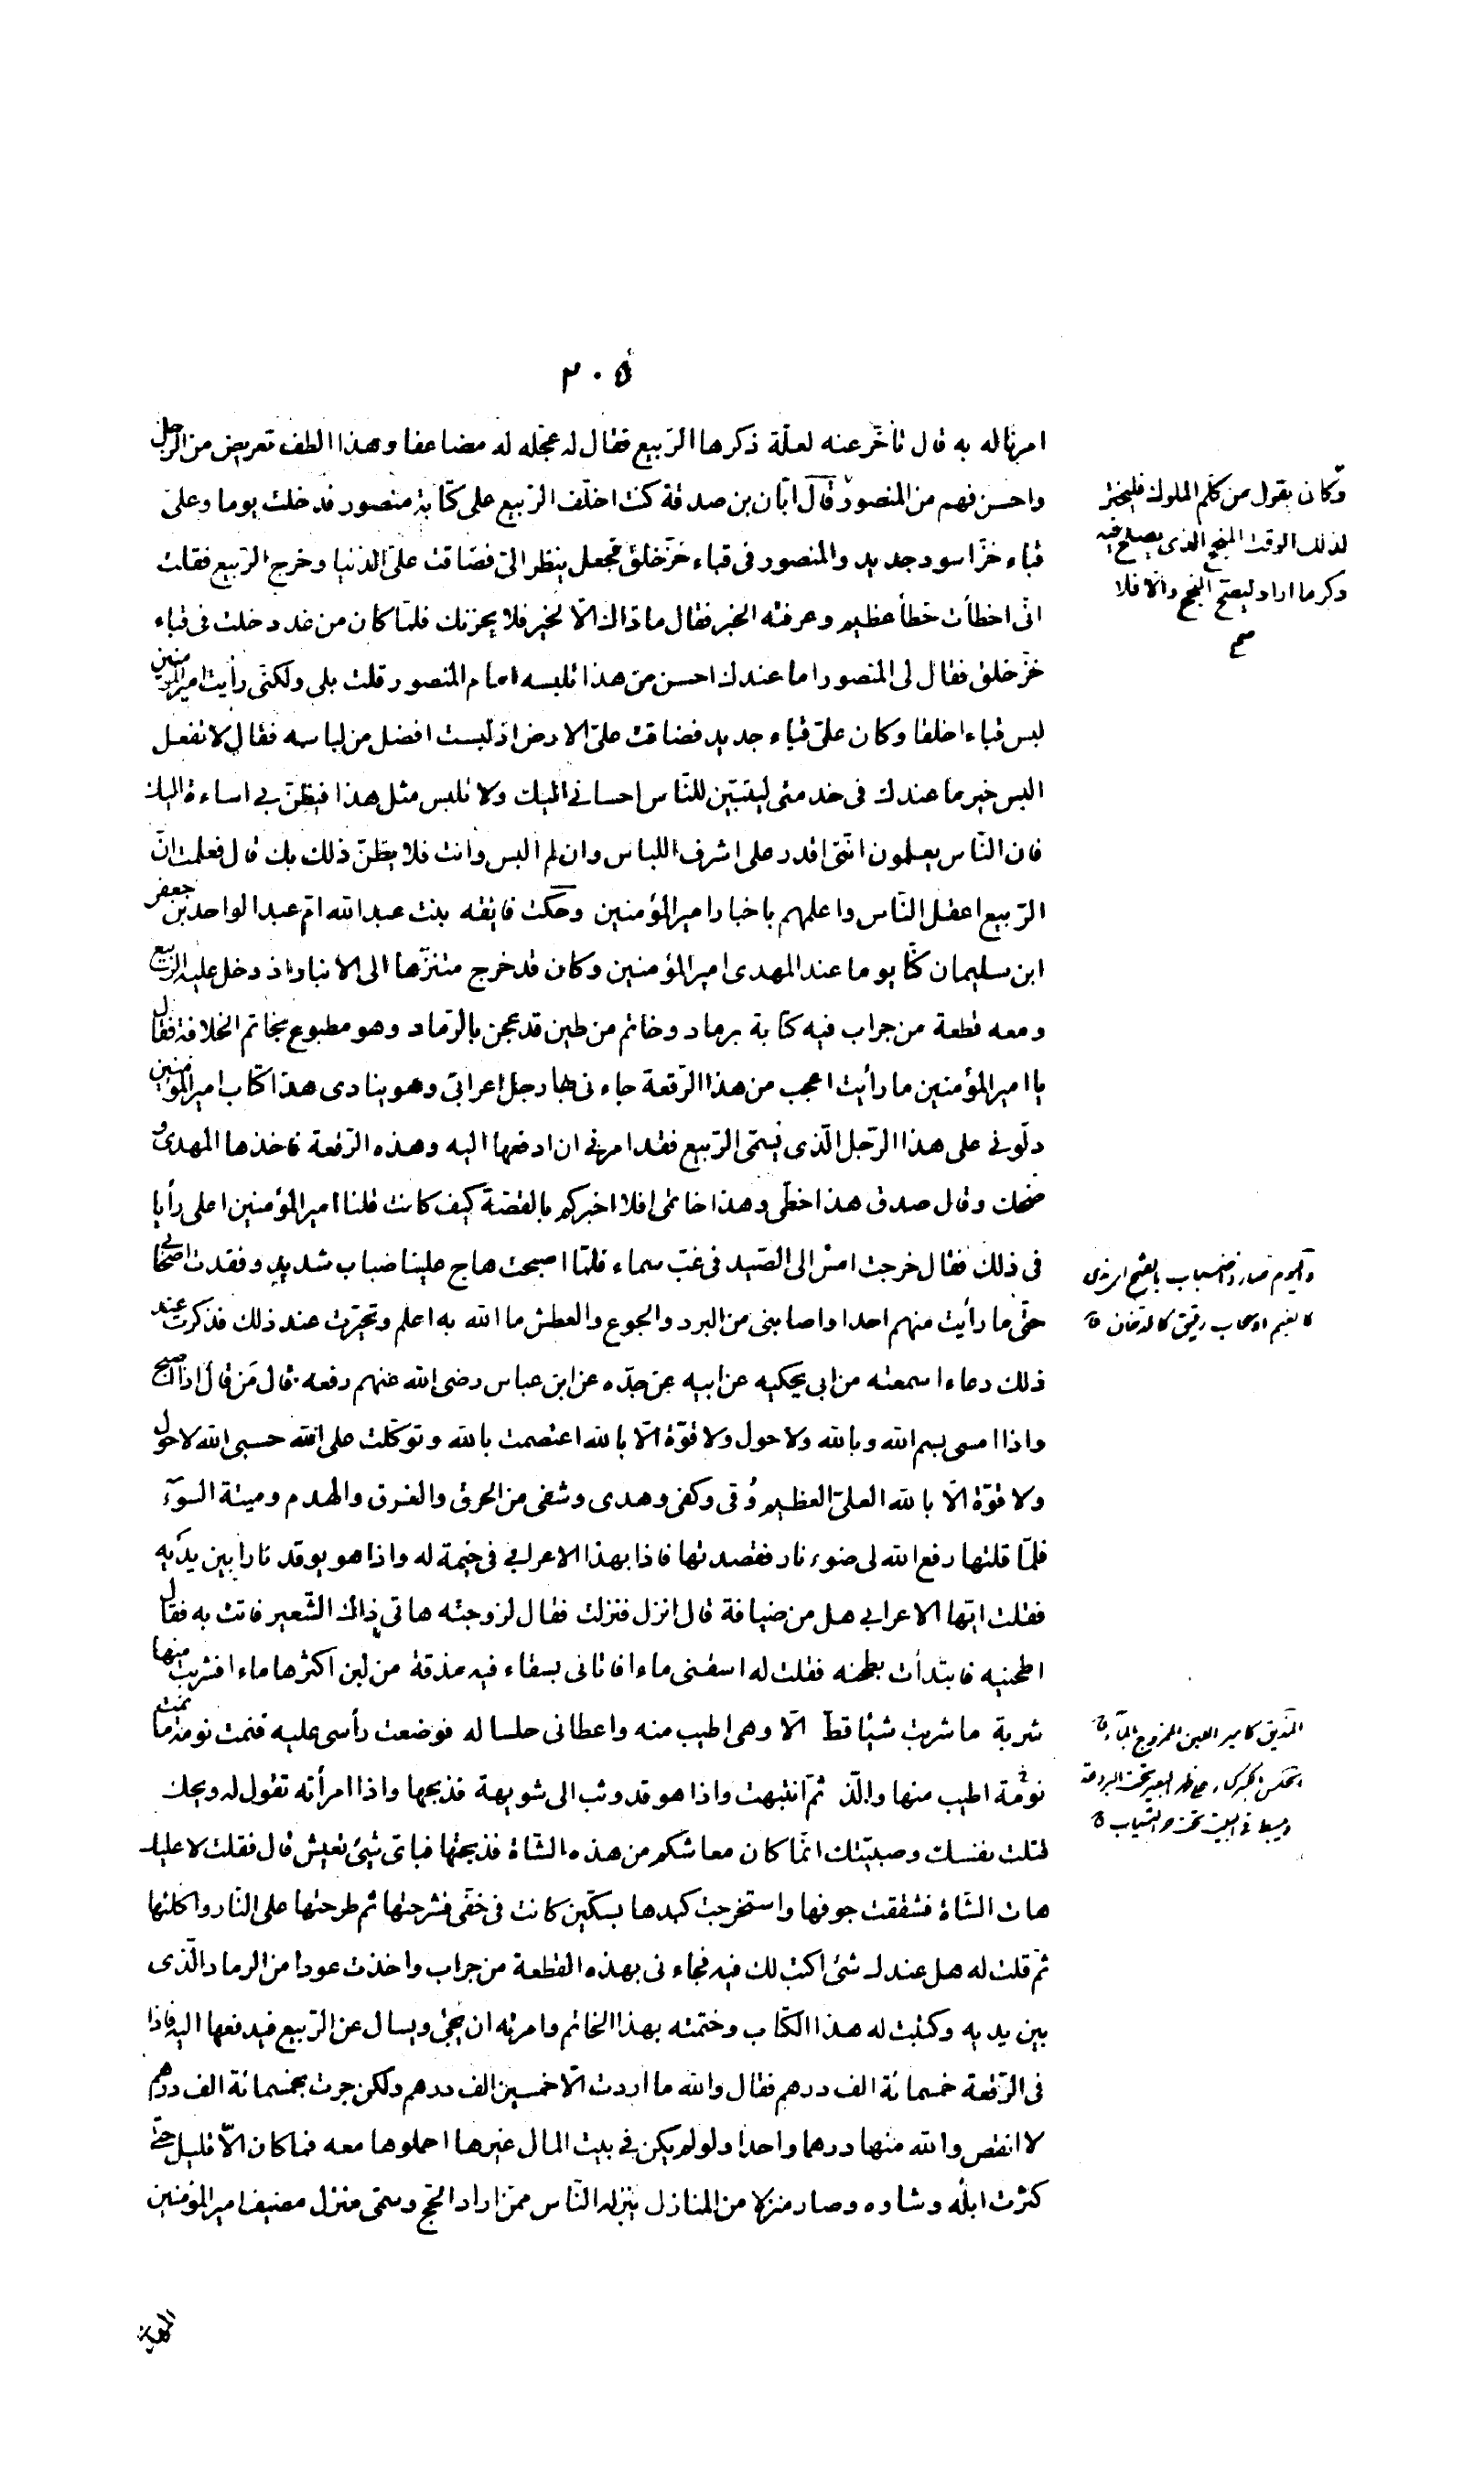 ٢٠٥
امرنا له به قال تأخّر عنه لعلّة ذكرها الرّبيع فقال له عجّله له مضاعفا وهذا الطف تعريض من الرّجل
واحسن فهم من المنصور قال ابّان بن صدقة كنت اخلّف الرّبيع على كتابة منصور فدخلت يوما وعلىّ
قباء خزّ اسود جديد والمنصور فى قباء خزّ خلق فجعل ينظر الىّ فضاقت علىّ الدّنيا وخرج الرّبيع فقلت
انّى اخطأت خطأ عظيم وعرفته الخبر فقال ما ذاك الّا لخير فلا يحزنك فلمّا كان من غد دخلت فى قباء
خزّ خلق فقال لى المنصور اما عندك احسن من هذا تلبسه امام المنصور قلت بلى ولكنّى رأيت امير المؤمنين
لبس قباءا خلقا وكان علىّ قباء جديد فضاقت علىّ الارض اذ لبست افضل من لباسه فقال لا تفعل
البس خير ما عندك فى خدمتى ليتبيّن للنّاس احسانى اليك ولا تلبس مثل هذا فيظنّ بى اساءة اليك
فان النّاس يعلمون انّنى اقدر على اشرف اللباس وان لم البس وانت فلا يظنّ ذلك بك قال فعلمت انّ
الرّبيع اعقل النّاس واعلمهم باخبار امير المؤمنين وحكت فايقه بنت عبد الله امّ عبد الواحد بن جعفر
ابن سليمان كنّا يوما عند المهدى امير المؤمنين وكان قد خرج متنزّها الى الانبار اذ دخل عليه الرّبيع
ومعه قطعة من جراب فيه كتابة برماد وخاتم من طين قد عجن بالرّماد وهو مطبوع بخاتم الخلافة فقال
يا امير المؤمنين ما رأيت اعجب من هذا الرّقعة جاءنى بها رجل اعرابىّ وهو ينادى هذا كتاب امير المؤمنين
دلّونى على هذا الرّجل الّذى يسمّى الرّبيع فقد امرنى ان ادفعها اليه وهذه الرّقعة فاخذها المهدى و
ضحك وقال صدق هذا خطّى وهذا خاتمى افلا اخبركم بالقصّة كيف كانت قلنا امير المؤمنين اعلى رأيا
فى ذلك فقال خرجت امس الى الصّيد فى غبّ سماء فلمّا اصبحت هاج علينا ضباب شديد وفقدت اصحابى
حتّى ما رأيت منهم احدا واصابنى من البرد والجوع والعطش ما الله به اعلم وتحيّرت عند ذلك فذكرت عند
ذلك دعاءا سمعته من ابى يحكيه عن ابيه عن جدّه عن ابن عباس رضى الله عنهم رفعه قال مَن قال اذا اصبح
واذا امسى بسم الله وبالله ولا حول ولا قوّة الّا بالله اعتصمت بالله وتوكّلت على الله حسبى الله لا حول
ولا قوّة الّا بالله العلىّ العظيم وُقى وكفى وهدى وشفى من الحرق والغرق والهدم وميتة السّوء
فلمّا قلتها رفع الله لى ضوء نار فقصدتها فاذا بهذا الاعرابى فى خيمة له واذا هو يوقد نارا بين يديه
فقلت ايّها الاعرابى هل من ضيافة قال انزل فنزلت فقال لزوجته هاتى ذاك الشّعير فاتت به فقال
اطحنيه فابتدأت بطحنه فقلت له اسقنى ماءا فاتانى بسقاء فيه مذقة من لبن اكثرها ماءا فشربت منها
شربة ما شربت شيئا قطّ الّا وهى اطيب منه واعطانى حلسا له فوضعت رأسى عليه فنمت نومة ما نمت
نومة اطيب منها والذّ ثمّ انتبهت واذا هو قد وثب الى شويهة فذبحها واذا امرأته تقول له ويحك
قتلت نفسك وصبيّتك انّما كان معاشكم من هذه الشّاة فذبحتها فباىّ شئ نعيش قال فقلت لا عليك
هات الشّاة فشققت جوفها واستخرجت كبدها بسكّين كانت فى خفّى فشرحتها ثم طرحتها على النّار واكلتها
ثمّ قلت له هل عندك شئ اكتب لك فيه فجاءنى بهذه القطعة من جراب واخذت عودا من الرماد الّذى
بين يديه وكتبت له هذا الكتاب وختمته بهذا الخاتم وامرته ان يجئ ويسال عن الرّبيع فيدفعها اليه فاذا
فى الرّقعة خمسمائة الف درهم فقال والله ما اردت الّا خمسين الف درهم ولكن جرت بخمسمائة الف درهم
لا انقص والله منها درهما واحدا ولو لم يكن فى بيت المال غيرها احملوها معه فما كان الّا قليل حتّى
كثرت ابله وشاوه وصار منزلا من المنازل ينزله النّاس ممّن اراد الحجّ وسمّى منزل مضيف امير المؤمنين
وكان يقول من كلّم الملوك فليختر
لذلك الوقت المنجح الذى يصلح فيه
ذكر ما اراد ليصحّ النجح والّا فلا
صح
كالغيم او سحاب رقيق كالدّخان ق
المذيق كامير اللبن الممزوج بالماء ق
ويبسط فى البيت تحت حرّ الثياب ق
المهدى